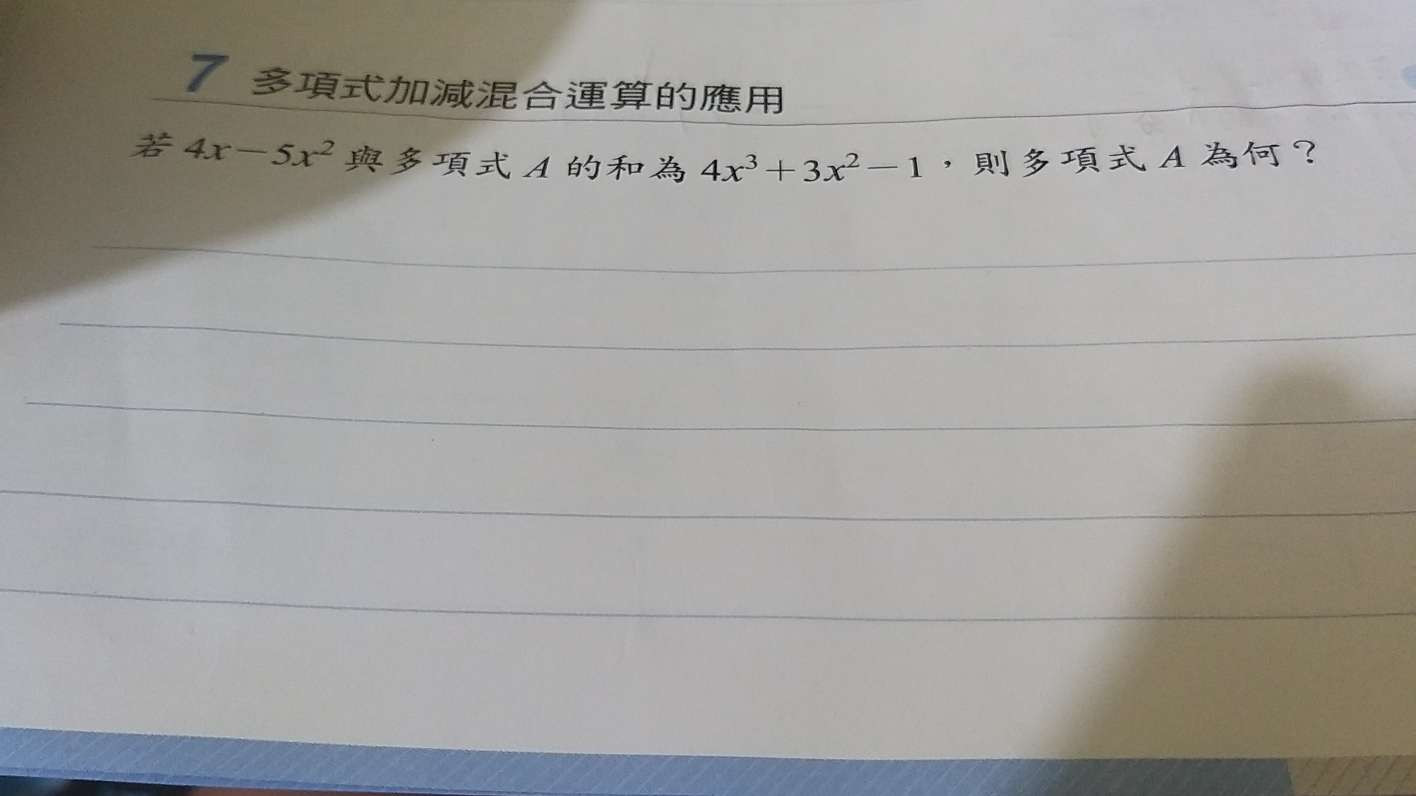 7 多項式加減混合運算的應用
若 4x－5x² 與多項式 A 的和為 4x³＋3x²－1，則多項式 A 為何？